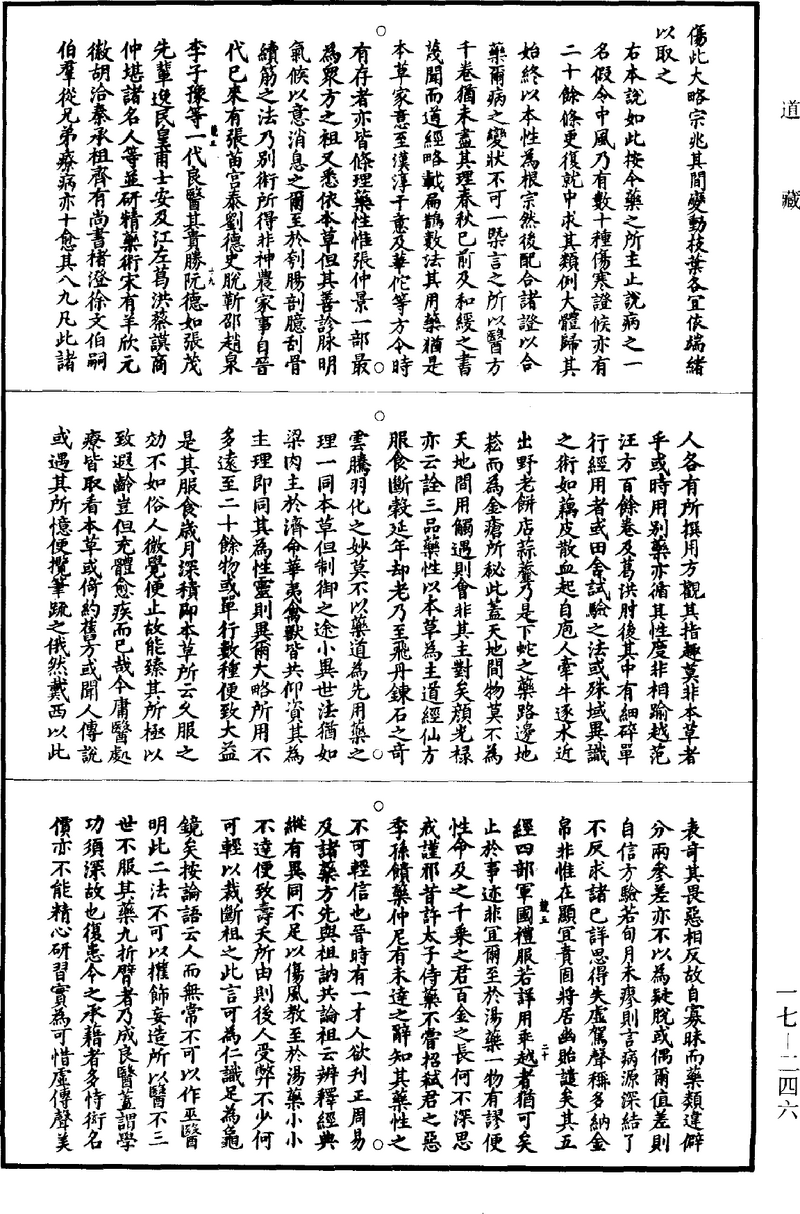 道藏
傷此大略宗兆其間變動枝葉各宜依端緒
以取之
右本說如此按今藥之所主止說病之一
名假令中風乃有數十種傷寒證候亦有
二十餘條更復就中求其類例大體歸其
始終以本性為根宗然後配合諸證以合
藥爾病之變狀不可一槩言之所以醫方
千卷猶未盡其理春秋已前及和緩之書
蔑聞而道經略載扁鵲數法其用藥猶是
本草家意至漢淳于意及華佗等方今時
有存者亦皆條理藥性惟張仲景一部最
為眾方之祖又悉依本草但其善診脉明
氣候以意消息之爾至於刳腸剖臆刮骨
續筋之法乃別術所得非神農家事自晉
代已來有張苗宮泰劉德史脫靳邵趙泉
李子豫等一代良醫其貴勝阮德如張茂
先輩逸民皇甫士安及江左葛洪蔡謨商
仲堪諸名人等並研精藥術宋有羊欣元
徽胡洽秦承祖齊有尚書褚澄徐文伯嗣
伯羣從兄弟療病亦十愈其八九凡此諸
人各有所撰用方觀其指趣莫非本草者
乎或時用別藥亦循其性度非相踰越范
汪方百餘卷及葛洪肘後其中有細碎單
行經用者或田舍試驗之法或殊域異識
之術如藕皮散血起自庖人牽牛逐水近
出野老餅店蒜虀乃是下蛇之藥路邊地
菘而為金瘡所秘此蓋天地間物莫不為
天地間用觸遇則會非其主對矣顏光祿
亦云詮三品藥性以本草為主道經仙方
服食斷穀延年却老乃至飛丹鍊石之奇
雲騰羽化之妙莫不以藥道為先用藥之
理一同本草但制御之途小異世法猶如
梁肉主於濟命華夷禽獸皆共仰資其為
主理即同其為性靈則異爾大略所用不
多遠至二十餘物或單行數種便致大益
是其服食歲月深積即本草所云久服之
效不如俗人微覺便止故能臻其所極以
致遐齡豈但充體愈疾而已哉今庸醫處
療皆取看本草或倚約舊方或聞人傳說
或遇其所憶便攬筆疏之俄然戴西以此
表奇其畏惡相反故自寡昧而藥類違僻
分兩參差亦不以為疑脫或偶爾值差則
自信方驗若旬月未瘳則言病源深結了
不反求諸已詳思得失虛駕聲稱多納金
帛非惟在顯宜責固將居幽貽譴矣其五
經四部軍國禮服若詳用乖越者猶可矣
止於事迹非宜爾至於湯藥一物有謬便
性命及之千乘之君百金之長何不深思
戒謹邪昔許太子侍藥不嘗招弒君之惡
季孫饋藥仲尼有未達之辭知其藥性之
不可輕信也晉時有一才人欲刋正周易
及諸藥方先與祖訥共論祖云辨釋經典
縱有異同不足以傷風教至於湯藥小小
不達便致壽夭所由則後人受弊不少何
可輕以裁斷祖之此言可為仁識足為龜
鏡矣按論語云人而無常不可以作巫醫
明此二法不可以權飾妄造所以醫不三
世不服其藥九折臂者乃成良醫蓋謂學
功須深故也復患今之承藉者多恃衒名
價亦不能精心研習實為可惜虛傳聲美
一七—二四六